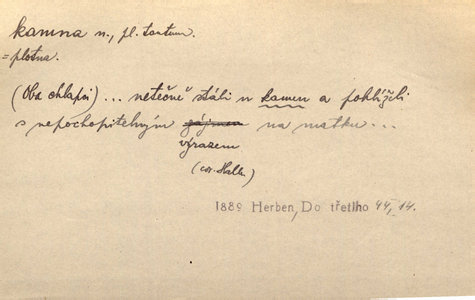 kamna n., pl. tantum.
= plotna.
(Oba chlapi) ... netečně stáli u kamen a pohlíželi
s nepochopitelným zájmem na matku...
výrazem
(cor. Halk.)
1889 Herben, Do třetího 44, 14.